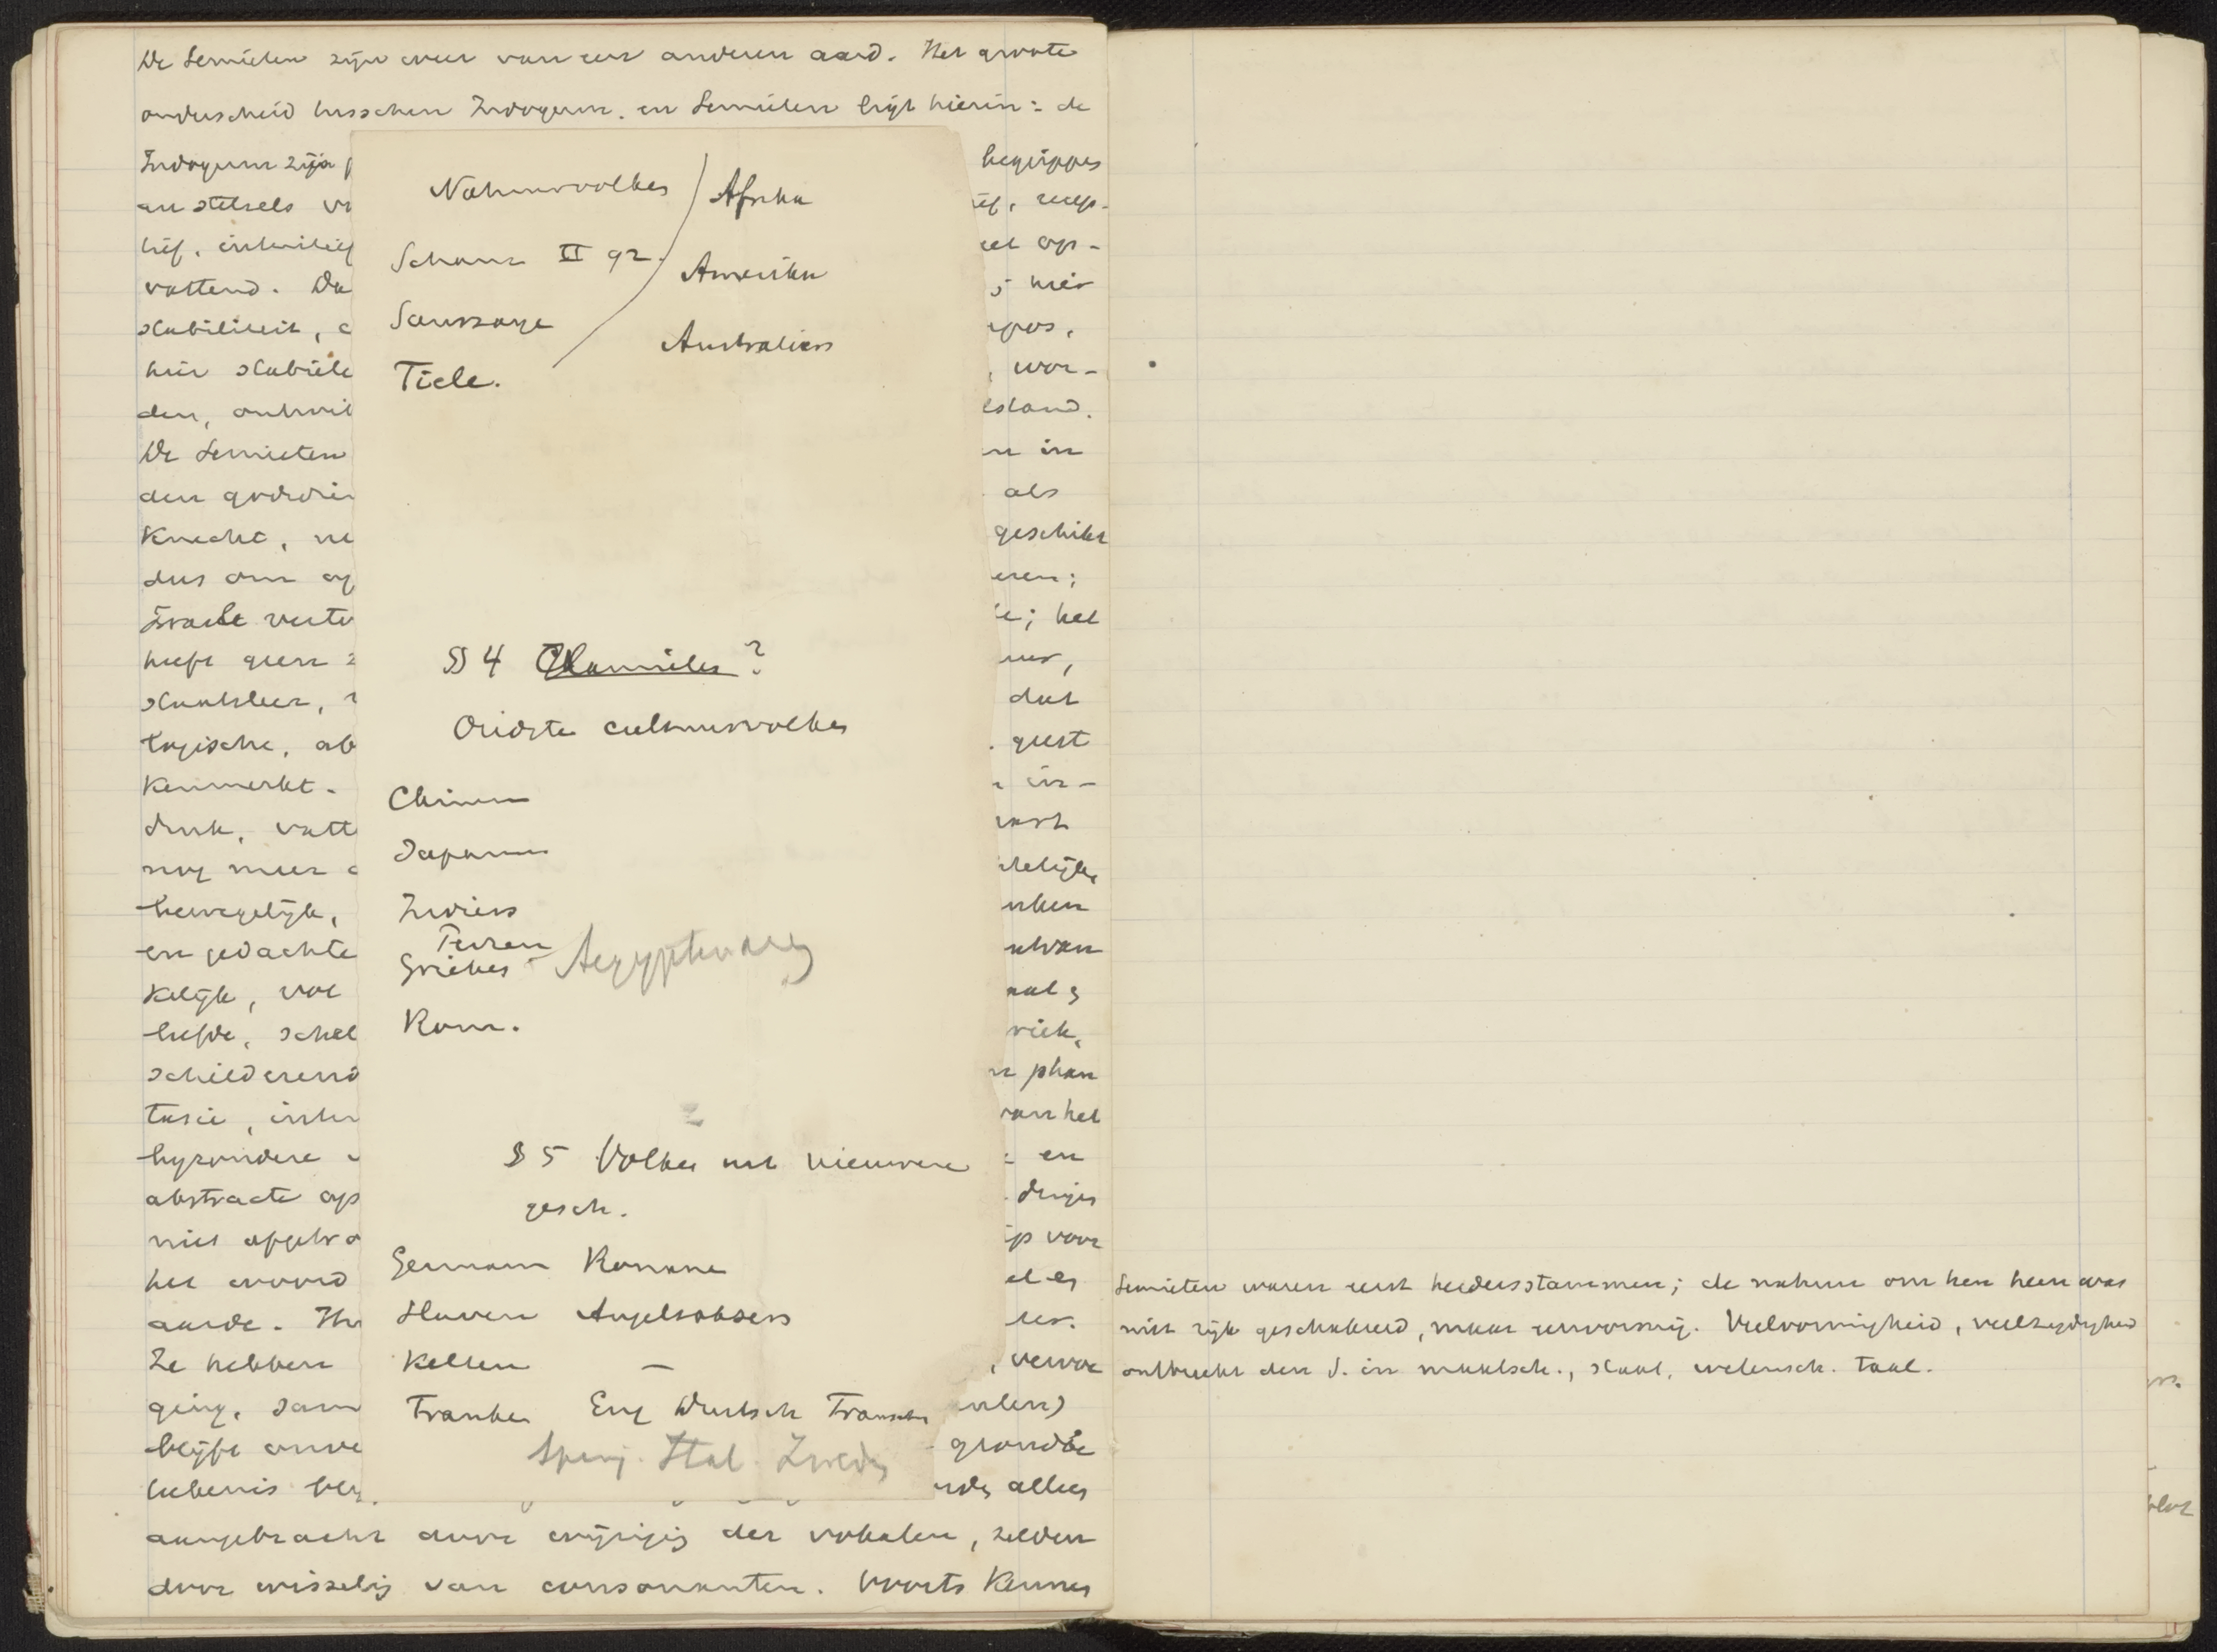 De Semieten zijn weer van een anderen aard. Het groote
onderscheid tusschen Indogerm. en Semieten ligt hierin: de
Indogerm zijn
begrippen
en stelsels
recep-
tief, intuitief
op-
vattend. Da
niet
stabiliteit,
hier stabiele
wor-
den, ontwik
De Semieten
in
den godsdien
als
Knecht, ne
geschikt
dus om op
Israels
; het
heeft geen
staatsleer,
dat
logische, ab
geest
Kenmerkt.
in-
druk, vatt
nog meer
bewegelijk,
en gedachte
kelijk, vol
liefde, schel
schilderend
phan
tasie, inten
van het
byzondere
en
abstracte op
dingen
niet afgetro
voor
het woord
aarde. Hun
Ze hebben
, verwoe
ging, sam
blijft onve
grondbe
teekenis
alles
aangebracht door wijziging der vokalen, zelden
door wisseling van consonanten. Voorts Kennen
Natuurvolken
Schanz II 92.
Saussaye
Tiele.
Afrika
Amerika
Australiërs
§ 4 Chamiten?
Oudste cultuurvolken
Chinee
Japanee
Indiërs
Perzen
Grieken Aegyptenaren
Rom.
§ 5 Volken met nieuwere
gesch.
Germanen Romane
Slaven Angelsaksers
Kelten —
Franken Eng Duitsch Fransche
Spanj. Ital. Zweden
Semieten waren eerst herdersstammen; de natuur om hen heen was
niet rijk geschakeerd, maar eenvormig. Veelvormigheid, veelzijdigheid
ontbreekt den S. in maatsch., staat, wetensch. taal.